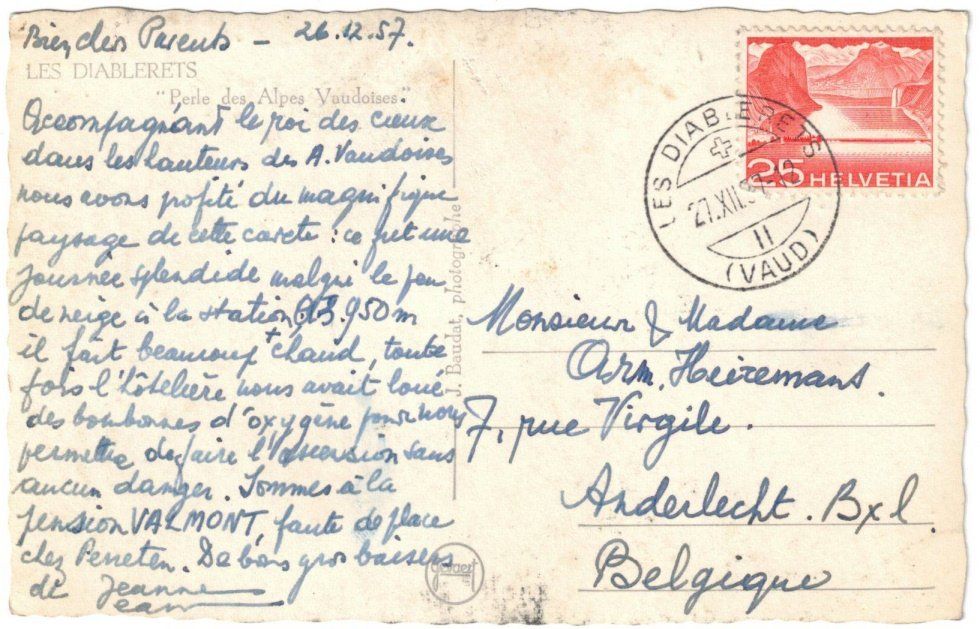 Bien chers Parents - 26.12.57.
LES DIABLERETS
"Perle des Alpes Vaudoises"
Accompagnant le roi des cieux
dans les hauteurs des A. Vaudoises
nous avons profité du magnifique
paysage de cette carte : ce fut une
journée splendide malgré le peu
de neige à la station, 950 m
il fait beaucoup + chaud, toute
fois l'hôtelière nous avait loué
des bombonnes d'oxygène pour nous
permettre de faire l'ascension sans
aucun danger. Sommes à la
pension VALMONT, faute de place
chez Perreten. De bons gros baisers
de Jeanne
Jean
J. Baudat, photographe
Gevaert
LES DIABLERETS
27.XII.57-12
II
(VAUD)
25 HELVETIA
Monsieur & Madame
Arm. Heiremans.
7, rue Virgile.
Anderlecht. Bxl.
Belgique